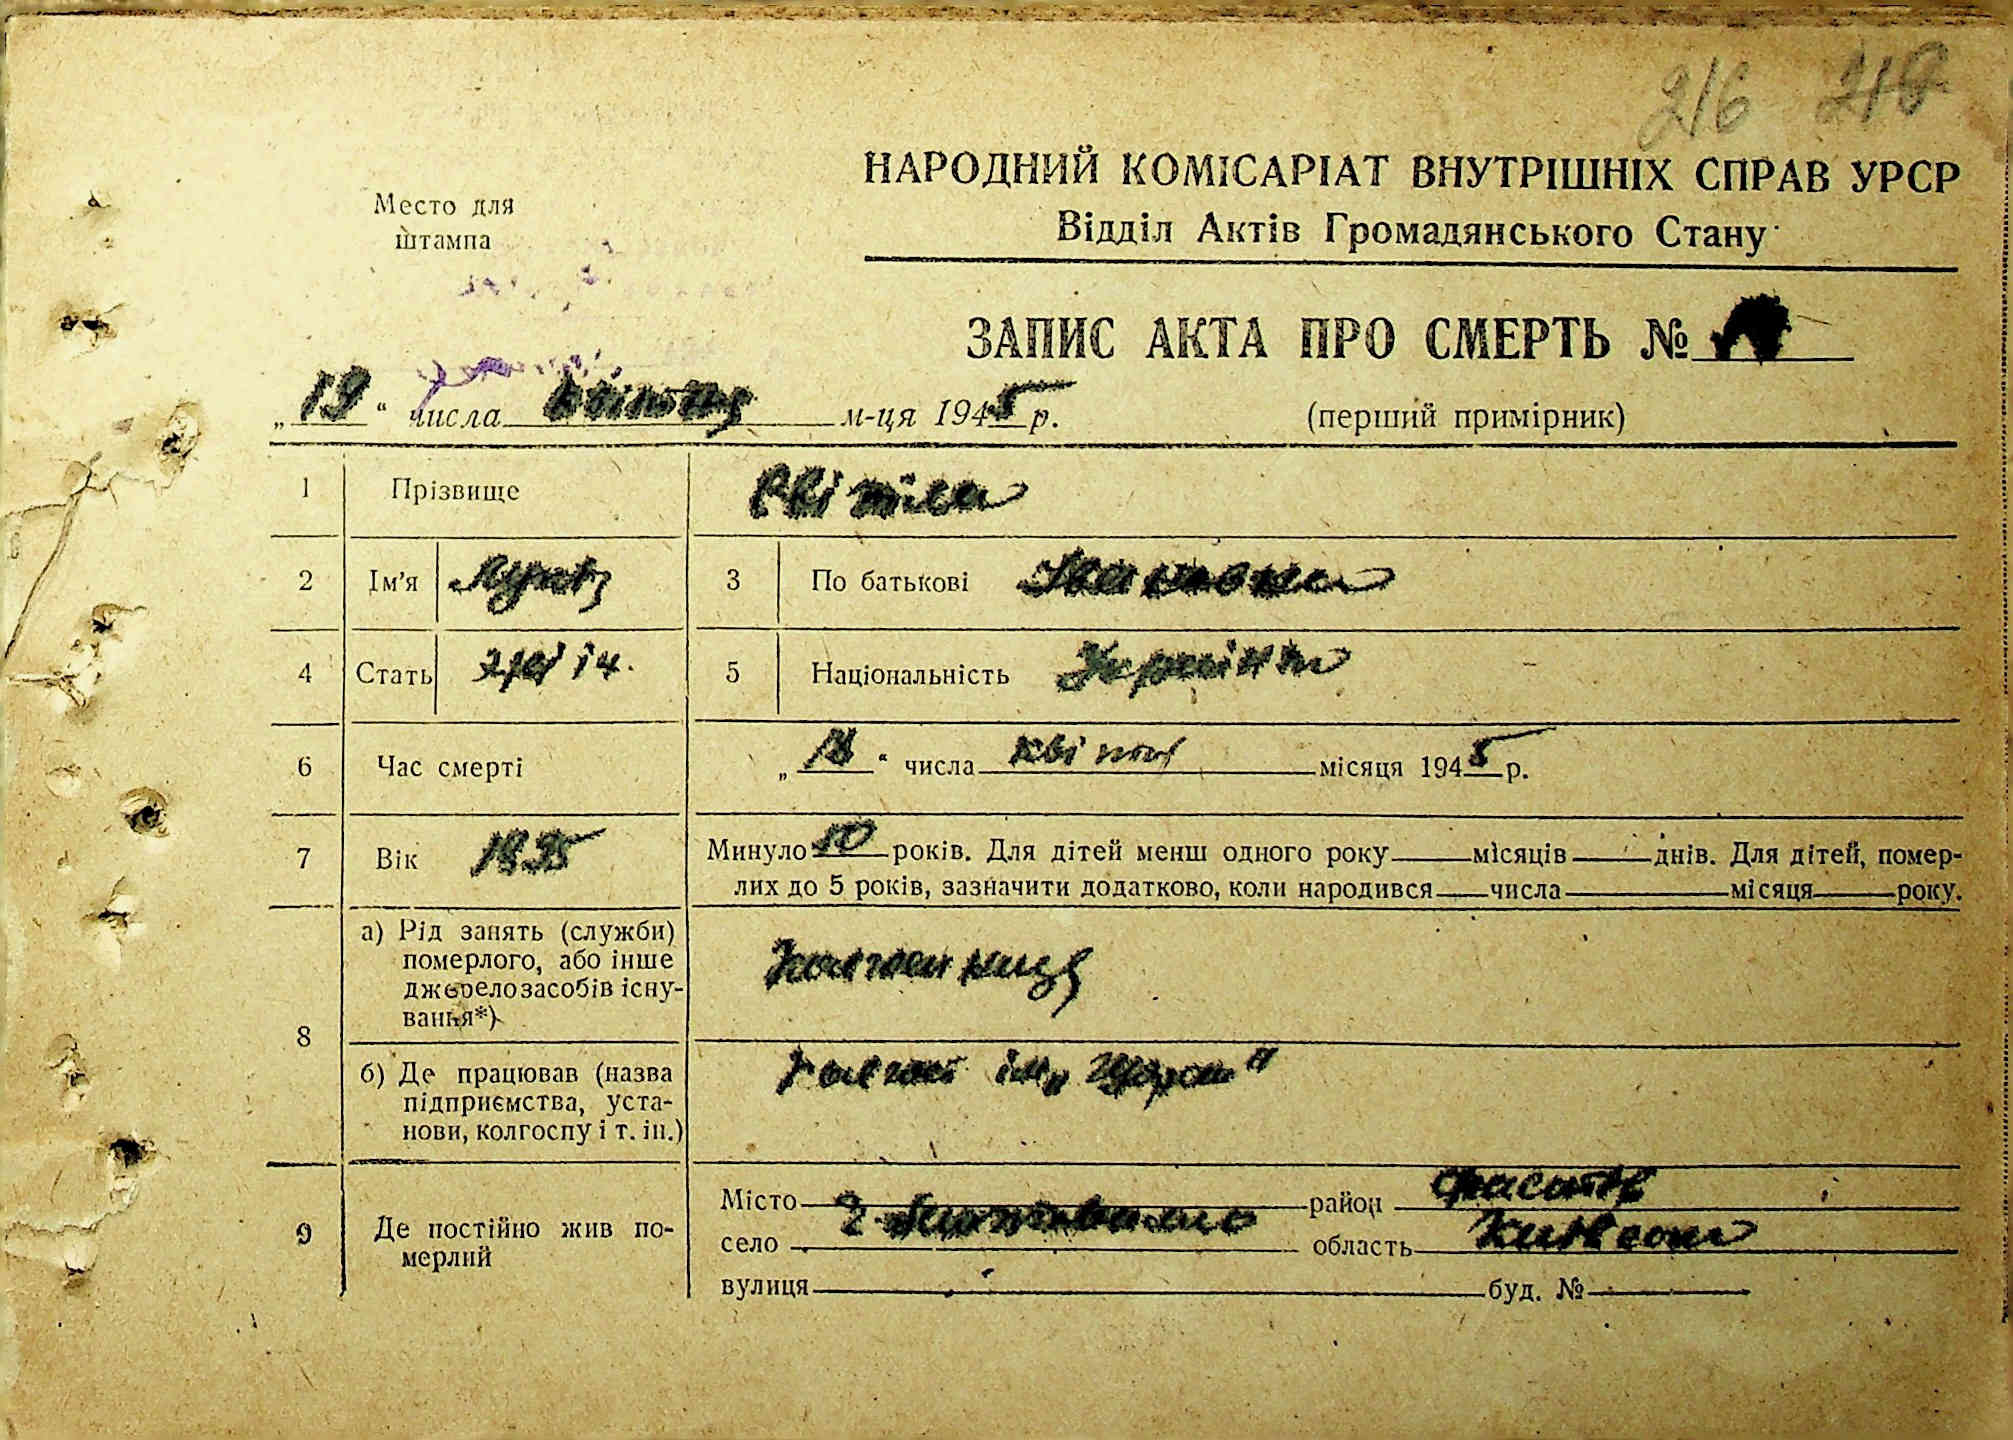 216 216
НАРОДНИЙ КОМІСАРІАТ ВНУТРІШНІХ СПРАВ УРСР
Место для штампа
Відділ Актів Громадянського Стану
ЗАПИС АКТА ПРО СМЕРТЬ №
„19“ числа квітня м-ця 1945 р. (перший примірник)
1 Прізвище
2 Ім'я 3 По батькові Івановна
4 Стать жін. 5 Національність
6 Час смерті „18“ числа квітня місяця 1945 р.
7 Вік 1895 Минуло 50 років. Для дітей менш одного року місяців днів. Для дітей, помер-
лих до 5 років, зазначити додатково, коли народився числа місяця року.
8 а) Рід занять (служби) померлого, або інше джерело засобів існування*)
б) Де працював (назва підприємства, установи, колгоспу і т. ін.) колгосп ім.
9 Де постійно жив померлий Місто район Фастів
село область
вулиця буд. №